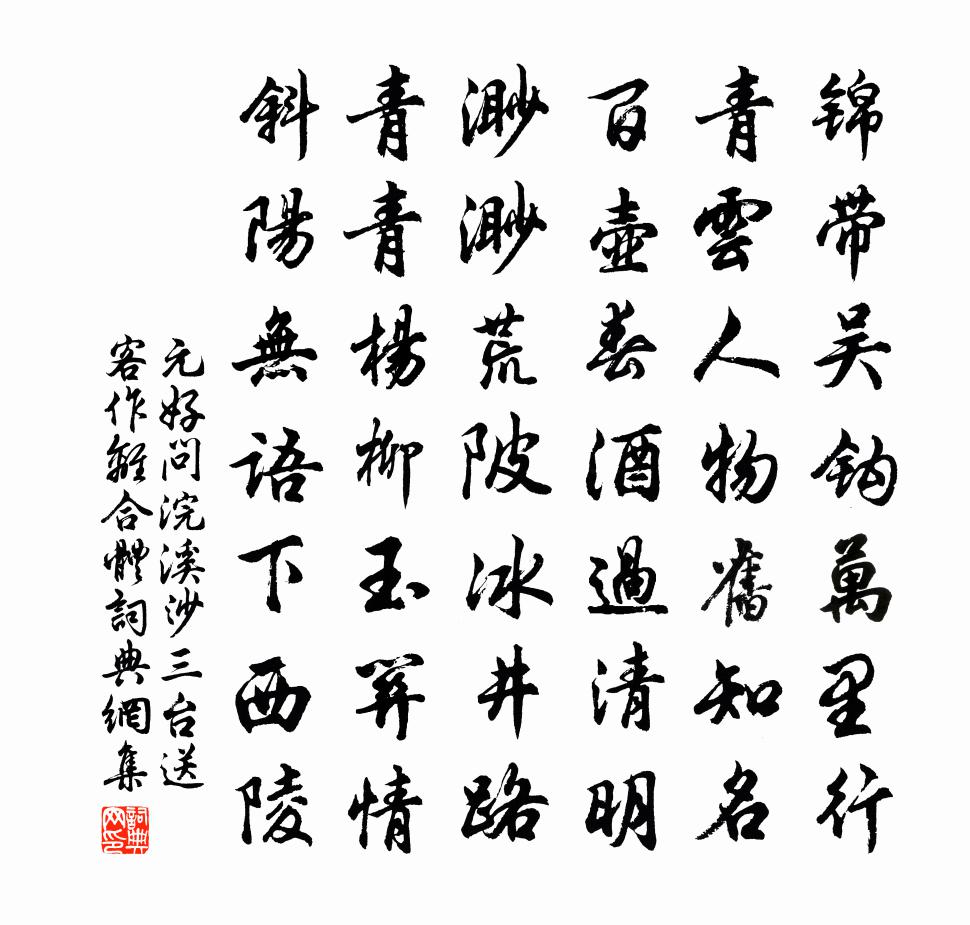 锦带吴钩萬里行
青雲人物舊知名
百壺春酒過清明
渺渺荒陂冰井路
青青楊柳玉關情
斜陽無語下西陵
元好问浣溪沙三台送
客作離合體詞典網集
詞典网印